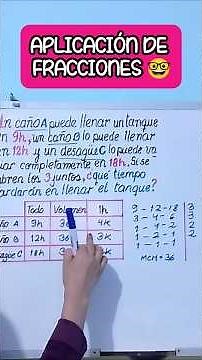 APLICACIÓN DE
FRACCIONES 🤓
Un caño A puede llenar un tanque
en 9h, un caño B lo puede llenar
en 12h y un desagüe C lo puede va
ar completamente en 18h. Si se
bren los 3 juntos, ¿qué tiempo
ardarán en llenar el tanque?
Todo Volumen 1h
ño A 9h 4k
ño B 12h 3k
agüe C 18h
9 - 12 - 18 3
3 - 4 - 6 3
1 - 4 - 2 2
1 - 2 - 1 2
1 - 1 - 1
MCM = 36